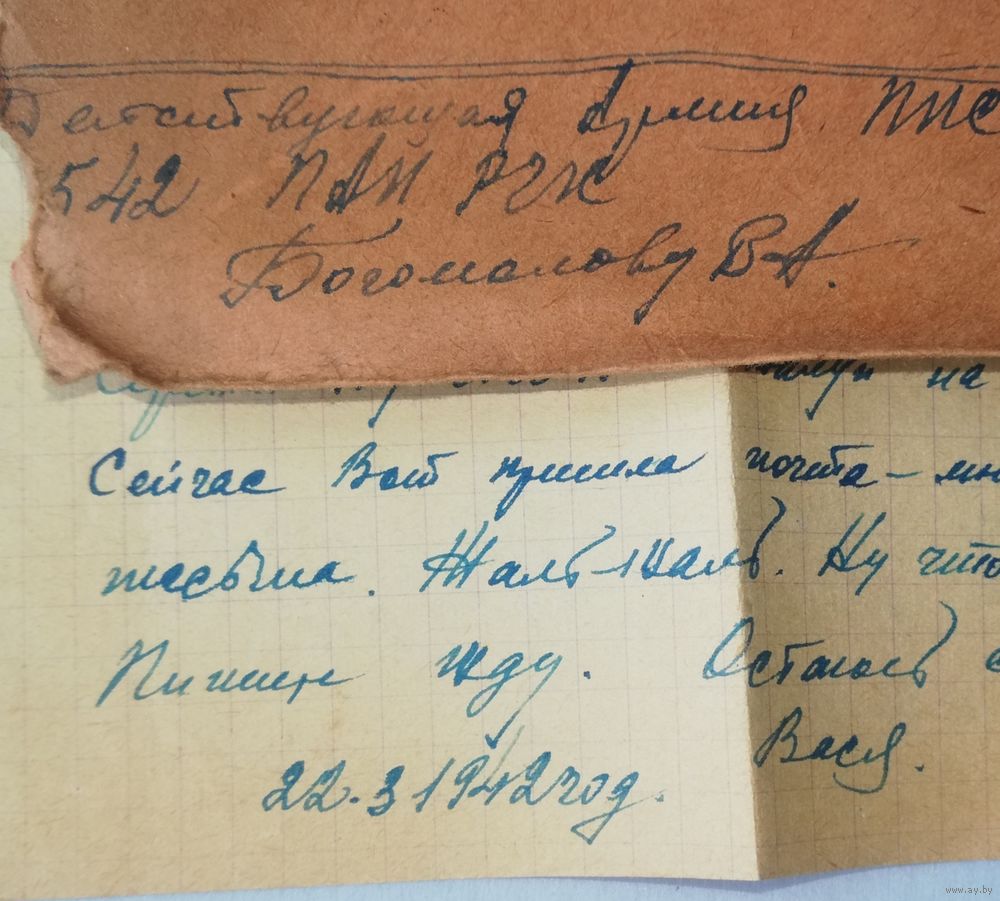 Действующая Армия ППС
542 ПАП РГК
Богомалову В-А.
на
Сейчас Вот пришла почта -
письма. Жаль-жаль. Ну что
Пишите жду. Остаюсь
Вася.
22.3 1942 год.
www.ay.by